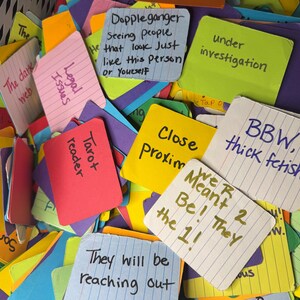 Doppleganger
Seeing people
that look Just
like this person
or Yourself
under
investigation
Legal
Issues
The
Tarot
reader
Close
proxim
BBW,
thick fetish
We R
Meant 2
Be! They
the 1!
They will be
reaching out